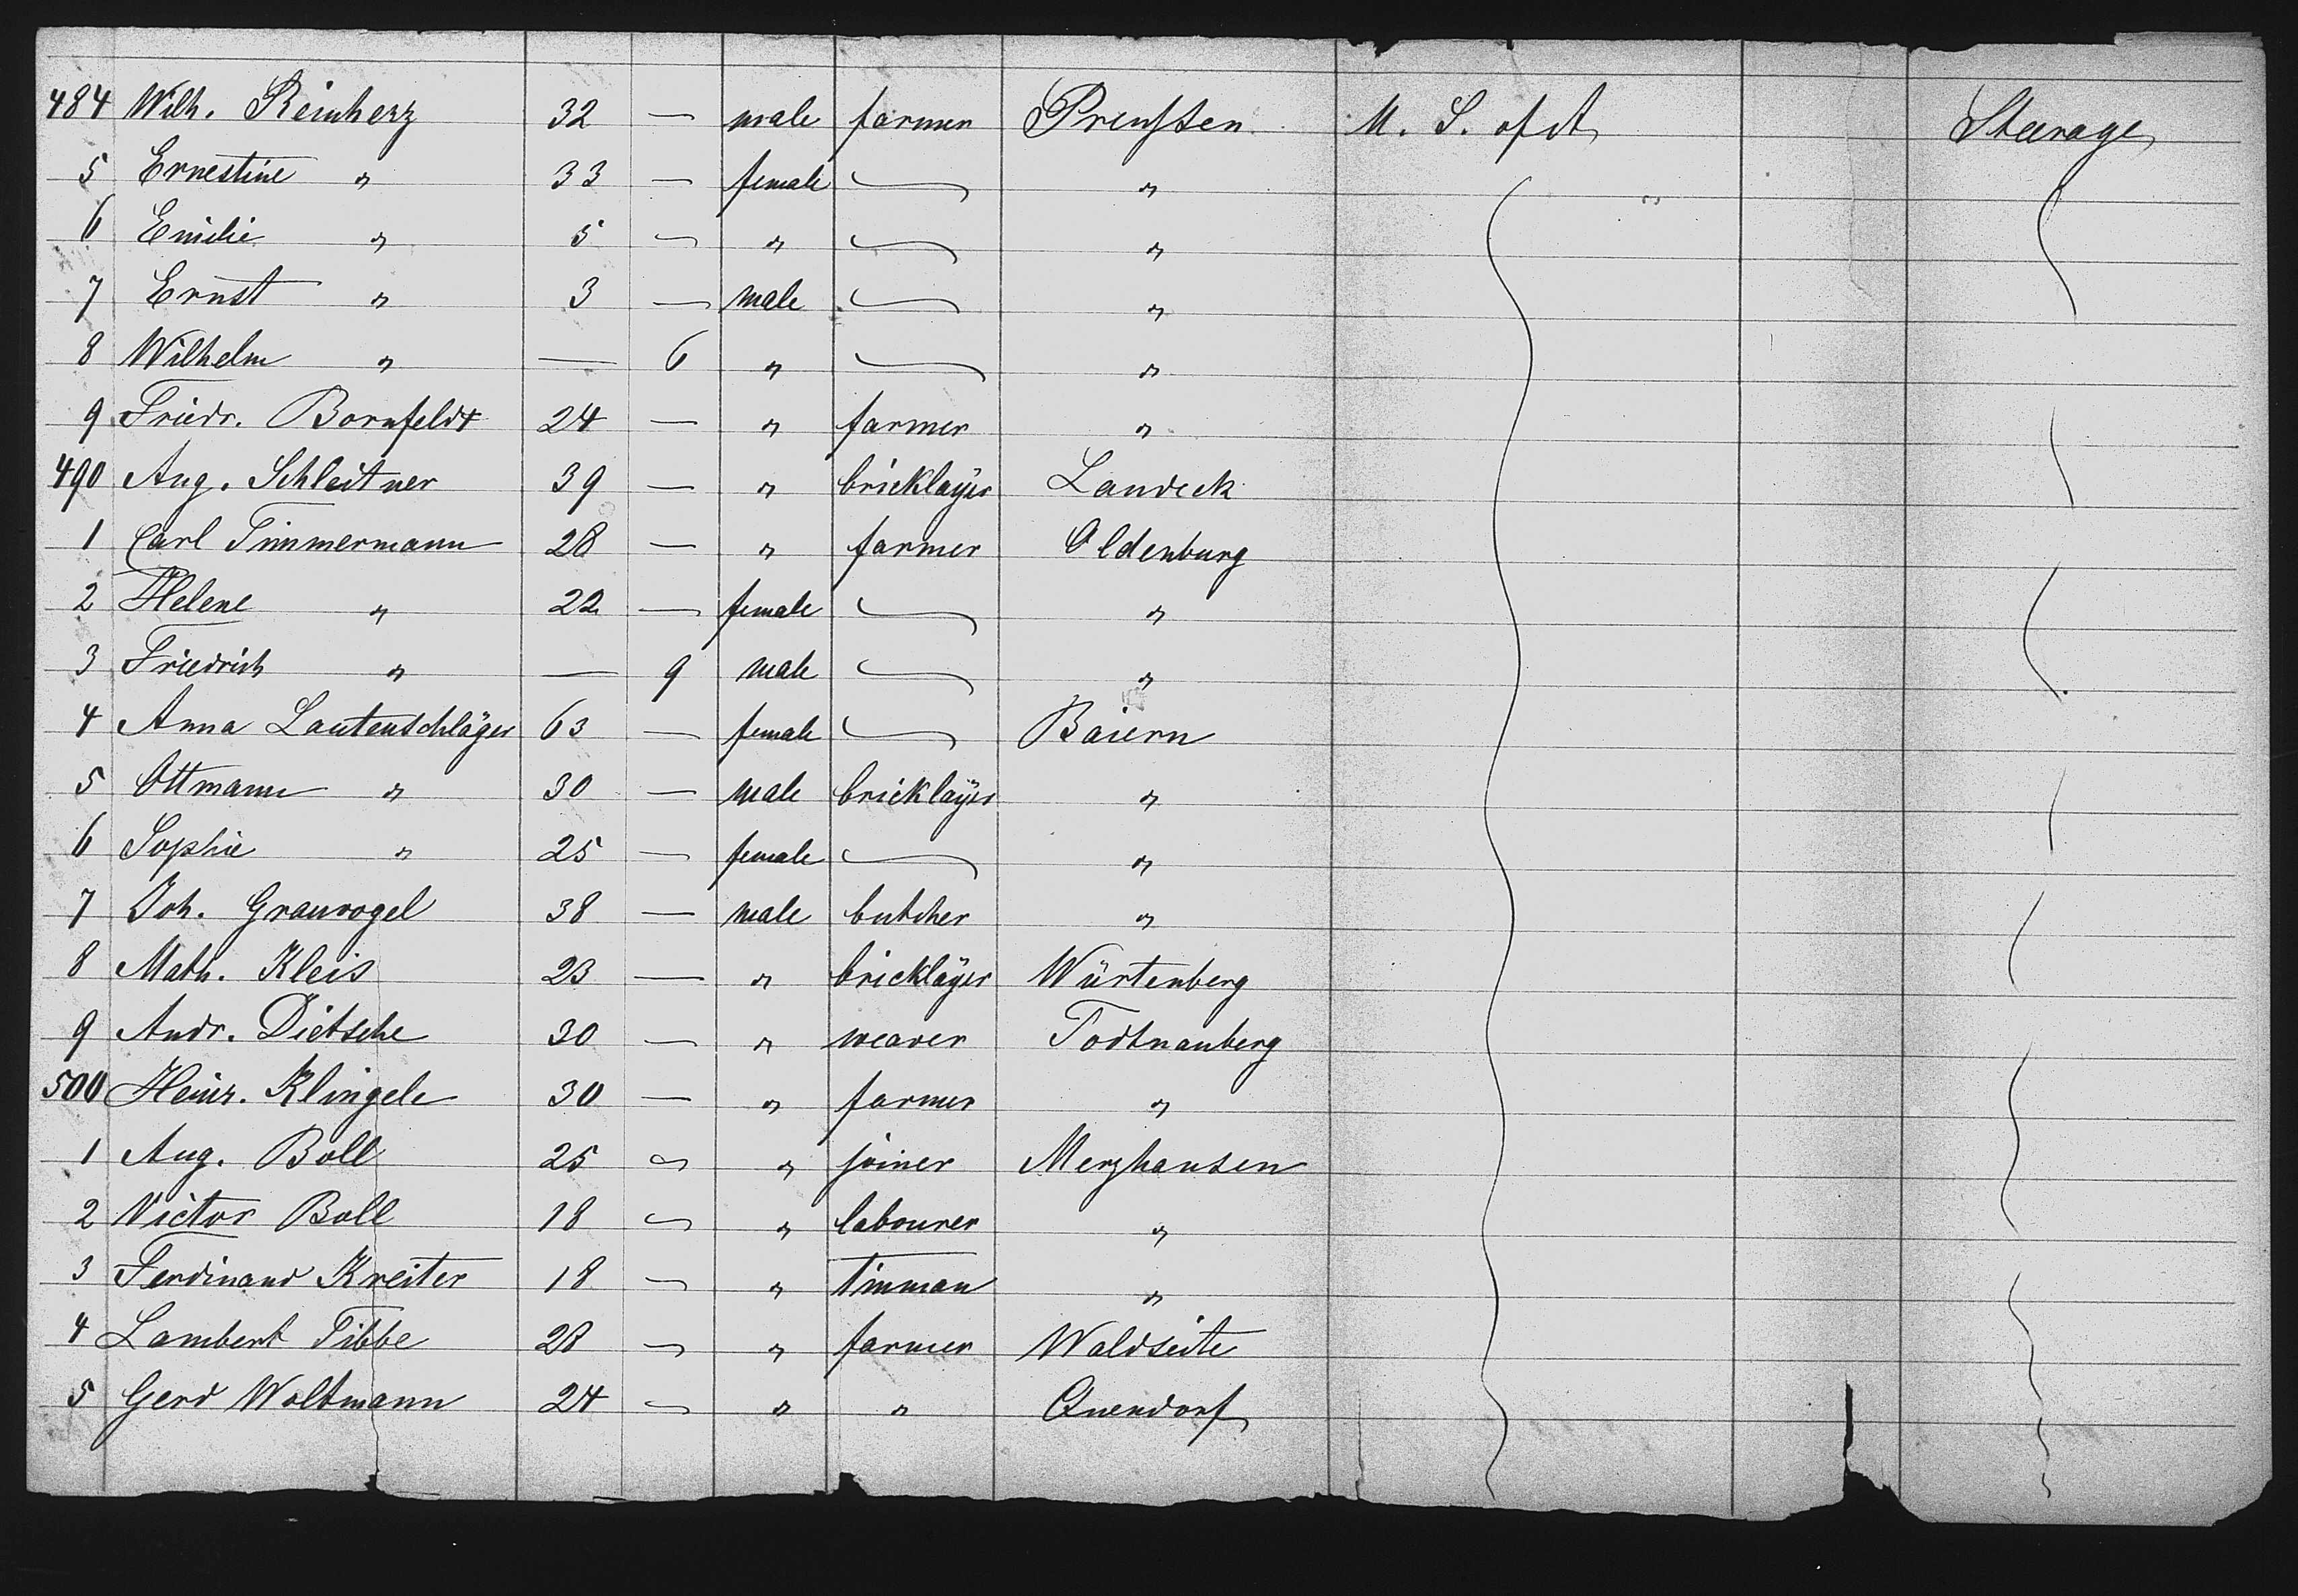 484 Wilh. Reinherz 32 — male farmer Preußen U. S. of A Steerage
5 Ernestine " 33 — female — "
6 Emilie " 5 — " — "
7 Ernst " 3 — male — "
8 Wilhelm " — 6 " — "
9 Friedr. Bornfeldt 24 — " farmer "
490 Aug. Schleitner 39 — " bricklayer Landeck
1 Carl Timmermann 28 — " farmer Oldenburg
2 Helene " 22 — female — "
3 Friedrich " — 9 male — "
4 Anna Lautenschläger 63 — female — Baiern
5 Ottmann " 30 — male bricklayer "
6 Sophie " 25 — female — "
7 Joh. Grauvogel 38 — male butcher "
8 Math. Kleis 23 — " bricklayer Würtenberg
9 Andr. Dietsche 30 — " weaver Todtnauberg
500 Heinr. Klingele 30 — " farmer "
1 Aug. Boll 25 — " joiner Merzhausen
2 Victor Boll 18 — " labourer "
3 Ferdinand Kreiter 18 — " tinman "
4 Lambert Tibbe 28 — " farmer Waldseite
5 Gerd Woltmann 24 — " " Quendorf